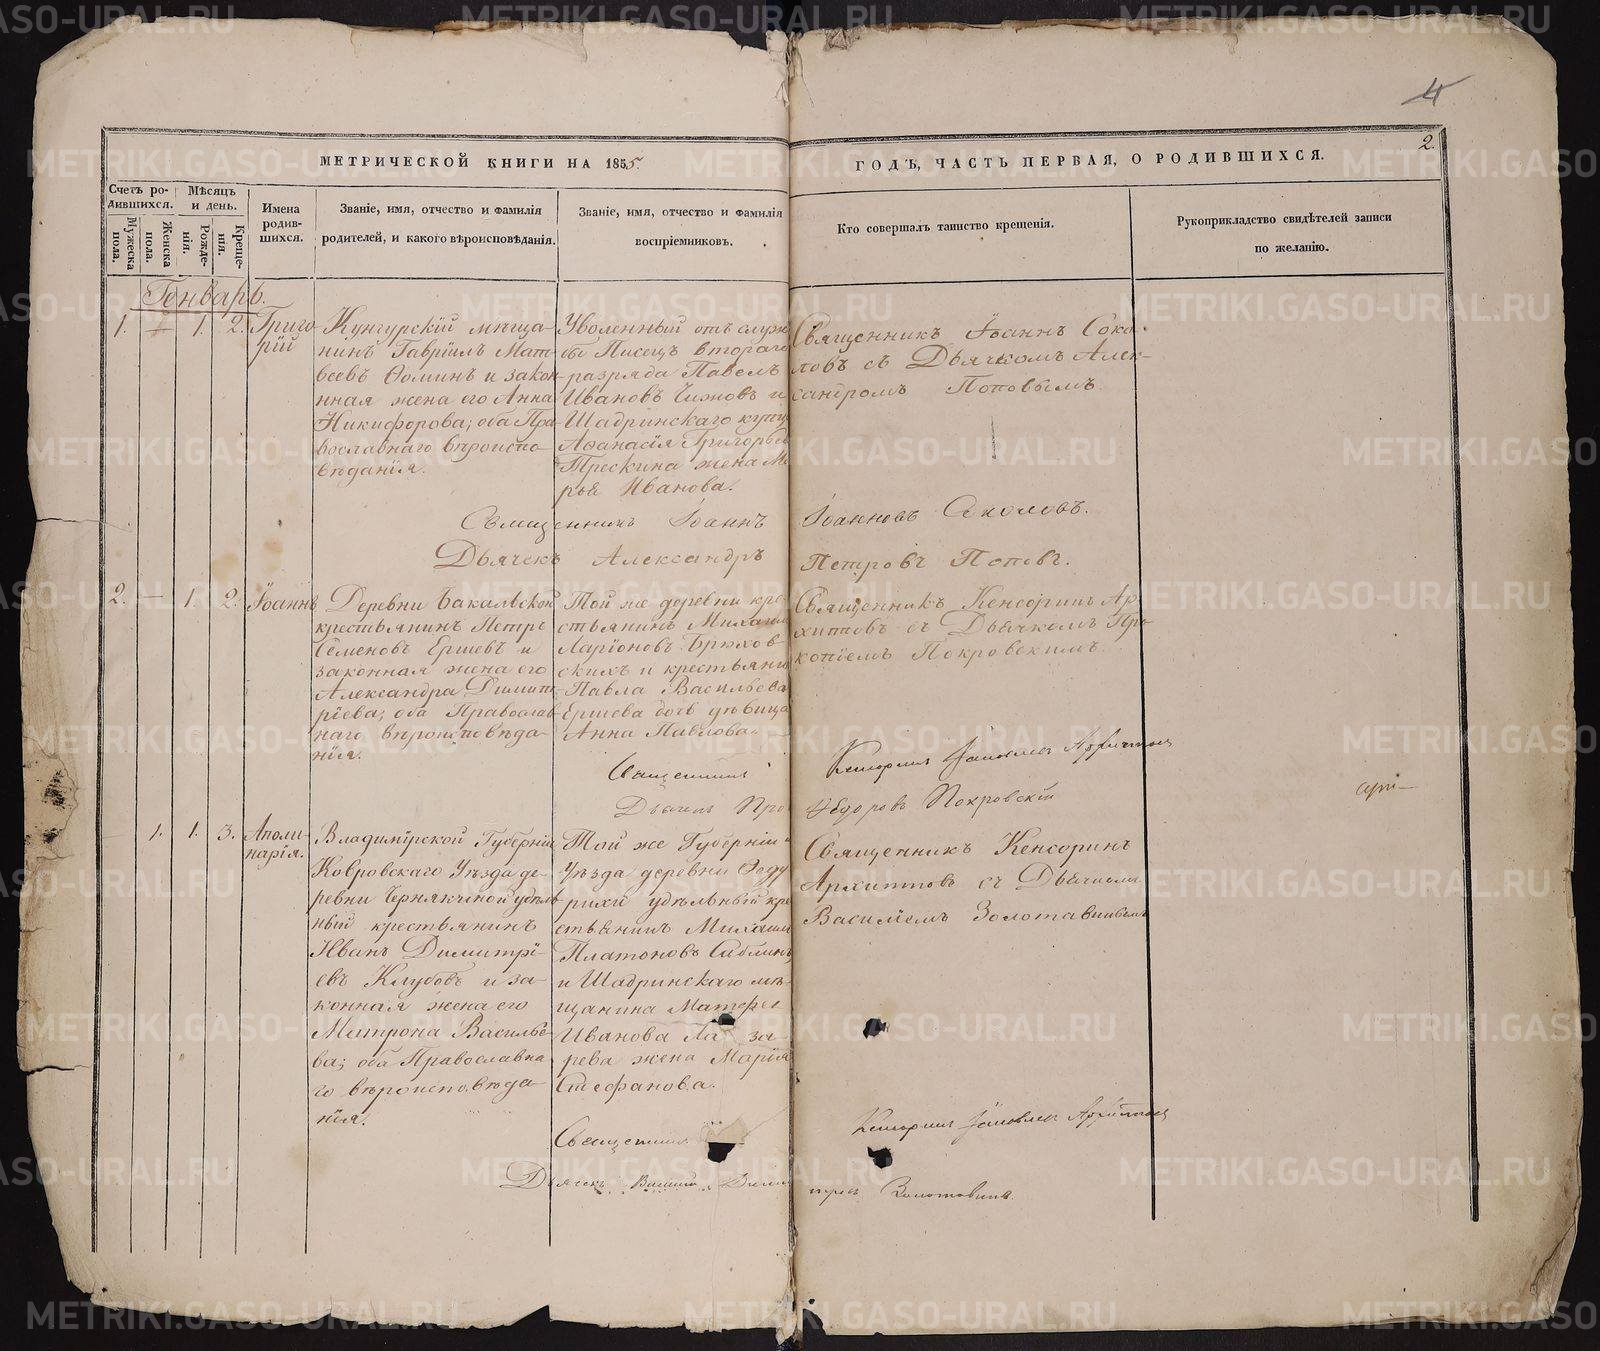 4
2.
МЕТРИЧЕСКОЙ КНИГИ НА 1855
ГОДЪ, ЧАСТЬ ПЕРВАЯ, О РОДИВШИХСЯ.
Счетъ родившихся.
Мужеска пола.
Женска пола.
Мѣсяцъ и день.
Рожденія.
Крещенія.
Имена родившихся.
Званіе, имя, отчество и фамилія
родителей, и какого вѣроисповѣданія.
Званіе, имя, отчество и фамилія
воспріемниковъ.
Кто совершалъ таинство крещенія.
Рукоприкладство свидѣтелей записи
по желанію.
Генварь.
1. 1. 2. Григо
рій
Кунгурскій мѣща-
нинъ Гавріилъ Мат-
веевъ Ѳоминъ и закон
ная жена его Анна
Никифорова; оба Пра-
вославнаго вѣроиспо-
вѣданія.
Уволенный отъ служ
бы Писецъ втораго
разряда Павелъ
Ивановъ Чижовъ и
Шадринскаго купц
Аѳанасія Григорьев
Трескина жена Ма
рья Иванова.
Священникъ Іоаннъ Соко-
ловъ съ Дьячкомъ Алек-
сандромъ Поповымъ
Священникъ Іоаннъ Іоанновъ Соколовъ.
Дьячекъ Александръ Петровъ Поповъ.
2. — 1. 2. Іоаннъ
Деревни Бакальской
крестьянинъ Петръ
Семеновъ Ершевъ и
законная жена его
Александра Димит-
ріева; оба Православ-
наго вѣроисповѣда-
нія.
Той же деревни кре-
стьянинъ Михаилъ
Ларіоновъ Брюхов
скихъ и крестьяни
Павла Васильева
Ершева дочь дѣвица
Анна Павлова.
Священникъ Кенсоринъ Ар-
хиповъ съ Дьячкомъ Про-
копіемъ Покровскимъ.
Священникъ Кенсоринъ Архиповъ
Дьячекъ Про Ѳедоровъ Покровскій
— 1. 1. 3. Аполи-
нарія.
Владимірской Губерніи
Ковровскаго Уѣзда де-
ревни удѣль
ный крестьянинъ
Иванъ Димитрі-
евъ Клубовъ и за-
конная жена его
Матрона Василье-
ва; оба Православна
го вѣроисповѣда-
нія.
Той же Губерніи
Уѣзда деревни
удѣльный кре
стьянинъ Михаилъ
Платоновъ Саблинъ
и Шадринскаго мѣ-
щанина Матфея
Иванова Ла за-
рева жена Марія
Стефанова.
Священникъ Кенсоринъ
Архиповъ съ Дьячкомъ
Василіемъ Золотавинымъ
Священникъ Кенсоринъ Архиповъ
Дьячекъ Василій Золотавинъ
METRIKI.GASO-URAL.RU